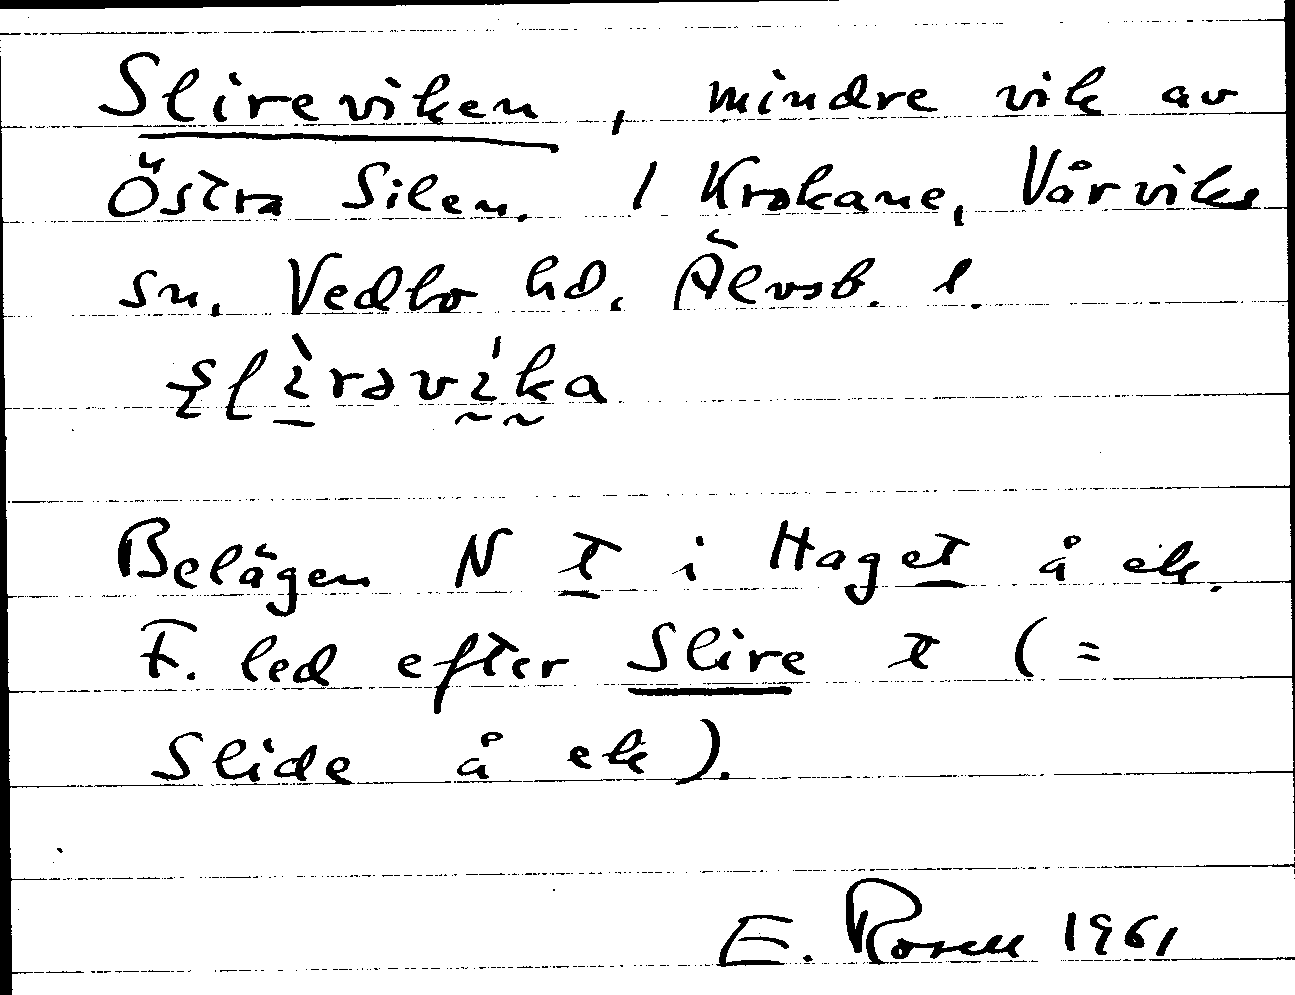 Slireviken, mindre vik av
Östra Silen. / Krokane, Vårviks
sn. Vedbo hd. Älvsb. l.
Belägen N t i Haget å ek.
F. led efter Slire t (=
Slide å ek).
E. Rosell 1961